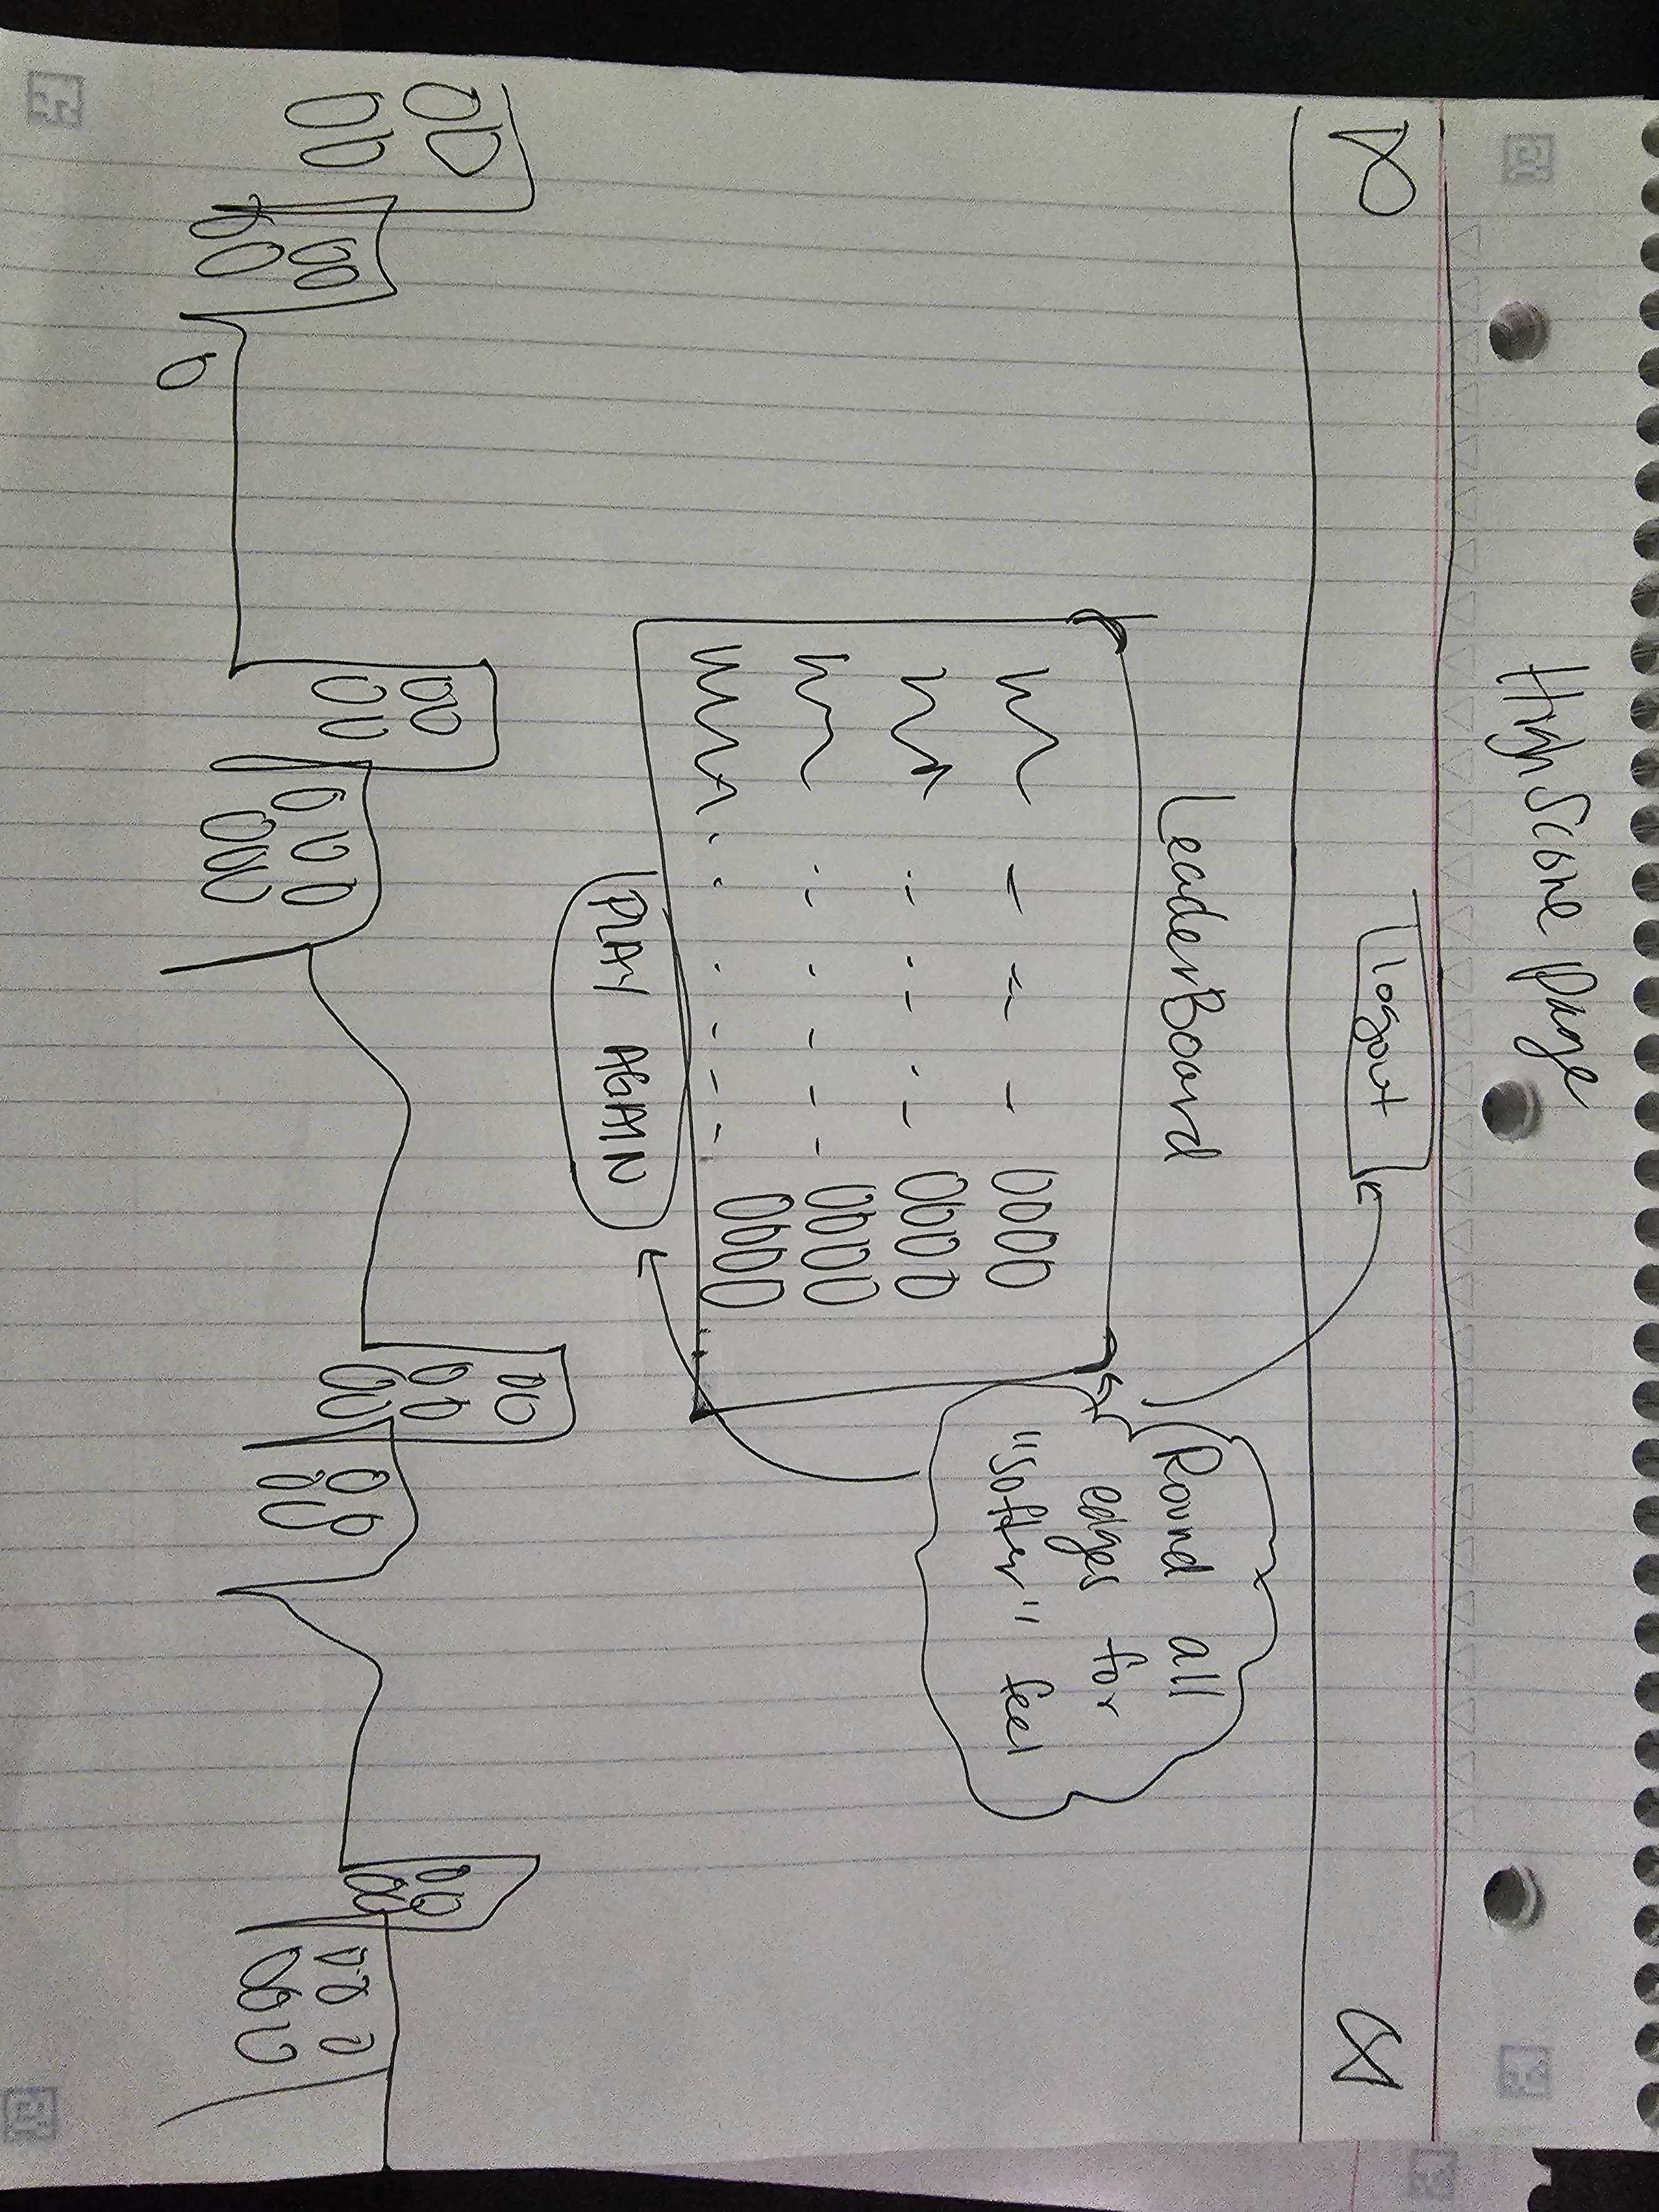 High Score Page
logout
LeaderBoard
0000
0000
0000
0000
PLAY AGAIN
Round all
edges for
"softer" feel